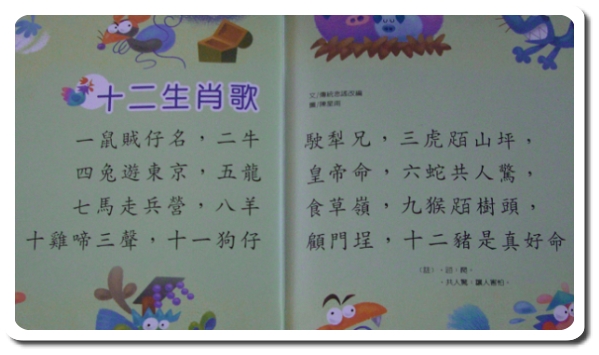 十二生肖歌
文/傳統念謠改編
一鼠賊仔名，二牛駛犁兄，三虎𬦰山坪，
四兔遊東京，五龍皇帝命，六蛇共人驚，
七馬走兵營，八羊食草嶺，九猴𬦰樹頭，
十雞啼三聲，十一狗仔顧門埕，十二豬是真好命